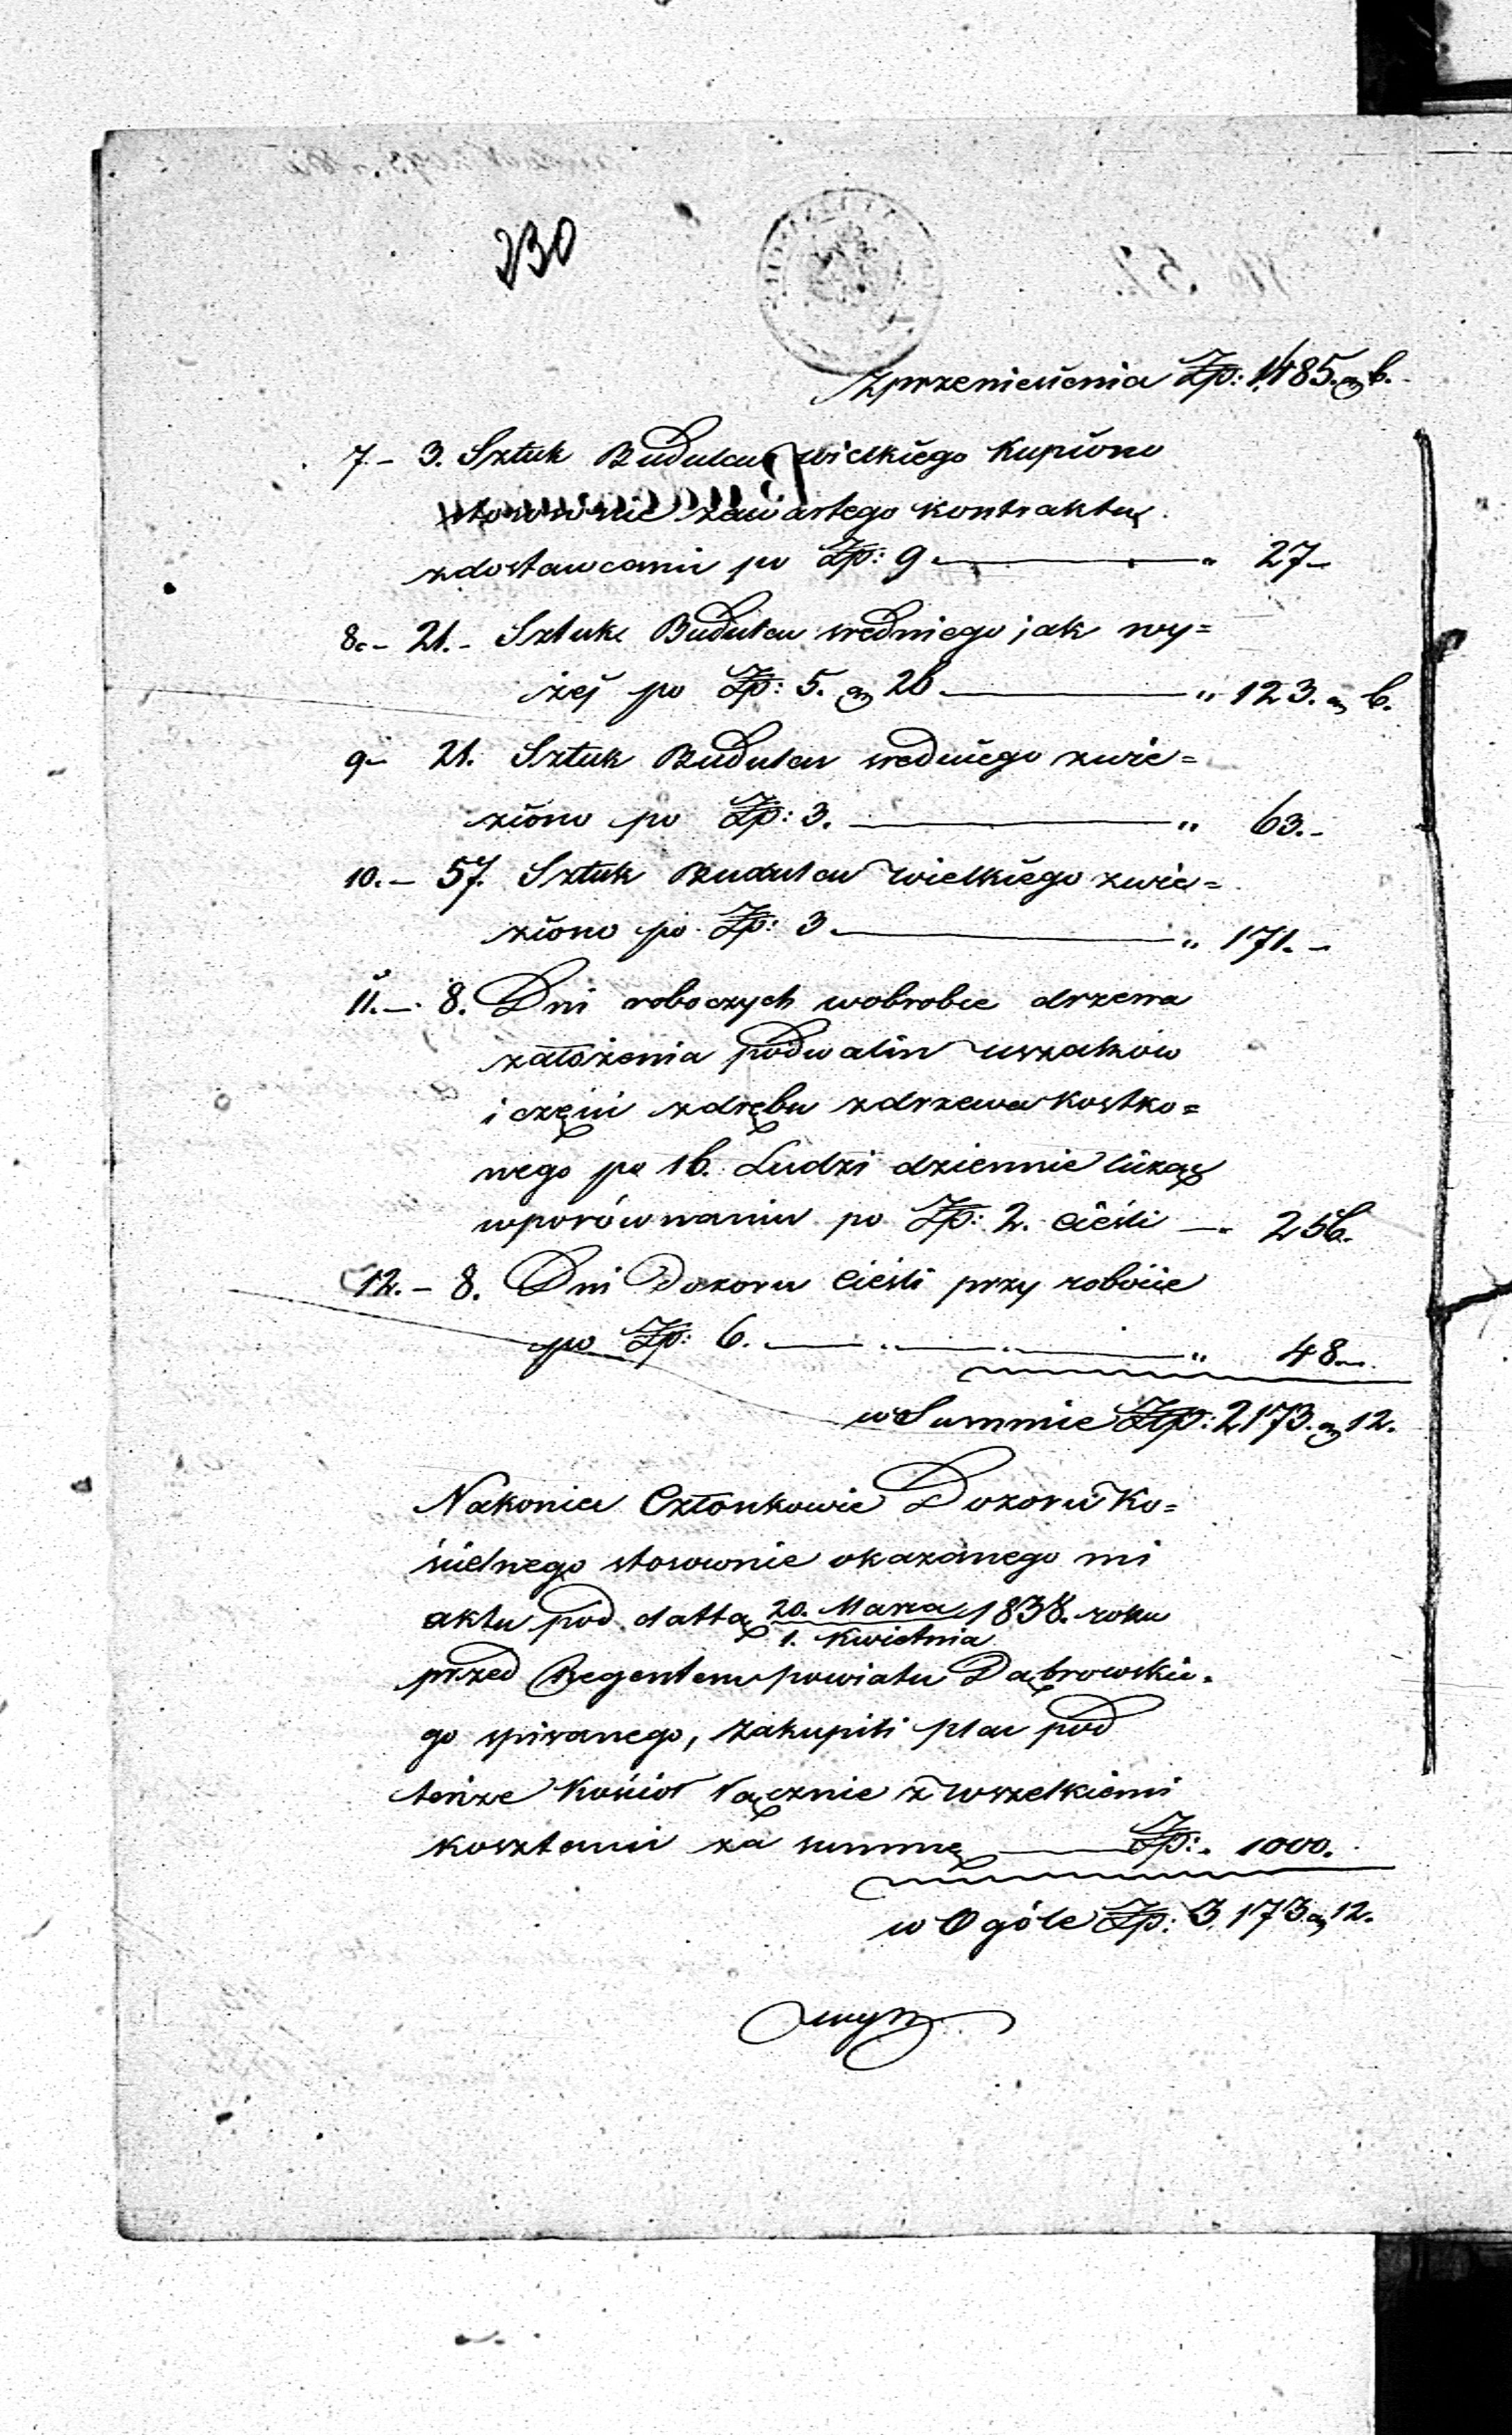 230
z przeniesienia Złp: 1,485. gr 6.
7. - 3. Sztuk Budulcu wielkiego kupiono
stosownie zawartego kontraktu
z dostawcami po Złp: 9 — " 27 -
8. - 21. - Sztuk Budulcu sredniego jak wy=
żej po Złp: 5. gr 26 — " 123. gr 6.
9 - 21. Sztuk Budulcu sredniego zwie=
ziono po Złp: 3. — " 63. -
10. - 57. Sztuk Budulcu wielkiego zwie=
ziono po Złp: 3 — " 171. -
11. - 8. Dni roboczych w obrobie drzewa
założenia podwalin uszaków
i części zdrębu z drzewa kostko=
wego po 16. Ludzi dziennie licząc
w porównaniu po Złp: 2. cieśli — " 256.
12. - 8. Dni Dozoru Cieśli przy robocie
po Złp: 6. — " 48 -
w Summie Złp: 2173. gr 12.
Nakoniec Członkowie Dozoru Ko=
ścielnego stosownie okazanego mi
aktu pod dattą 20. Marca 1838. roku
1. Kwietnia
przed Regentem powiatu Dąbrowskie=
go spisanego, zakupili plac pod
tenże Kościoł łącznie z wszelkiemi
kosztami za summę — Złp: 1000.
w Ogóle Złp: 3,173 gr 12.